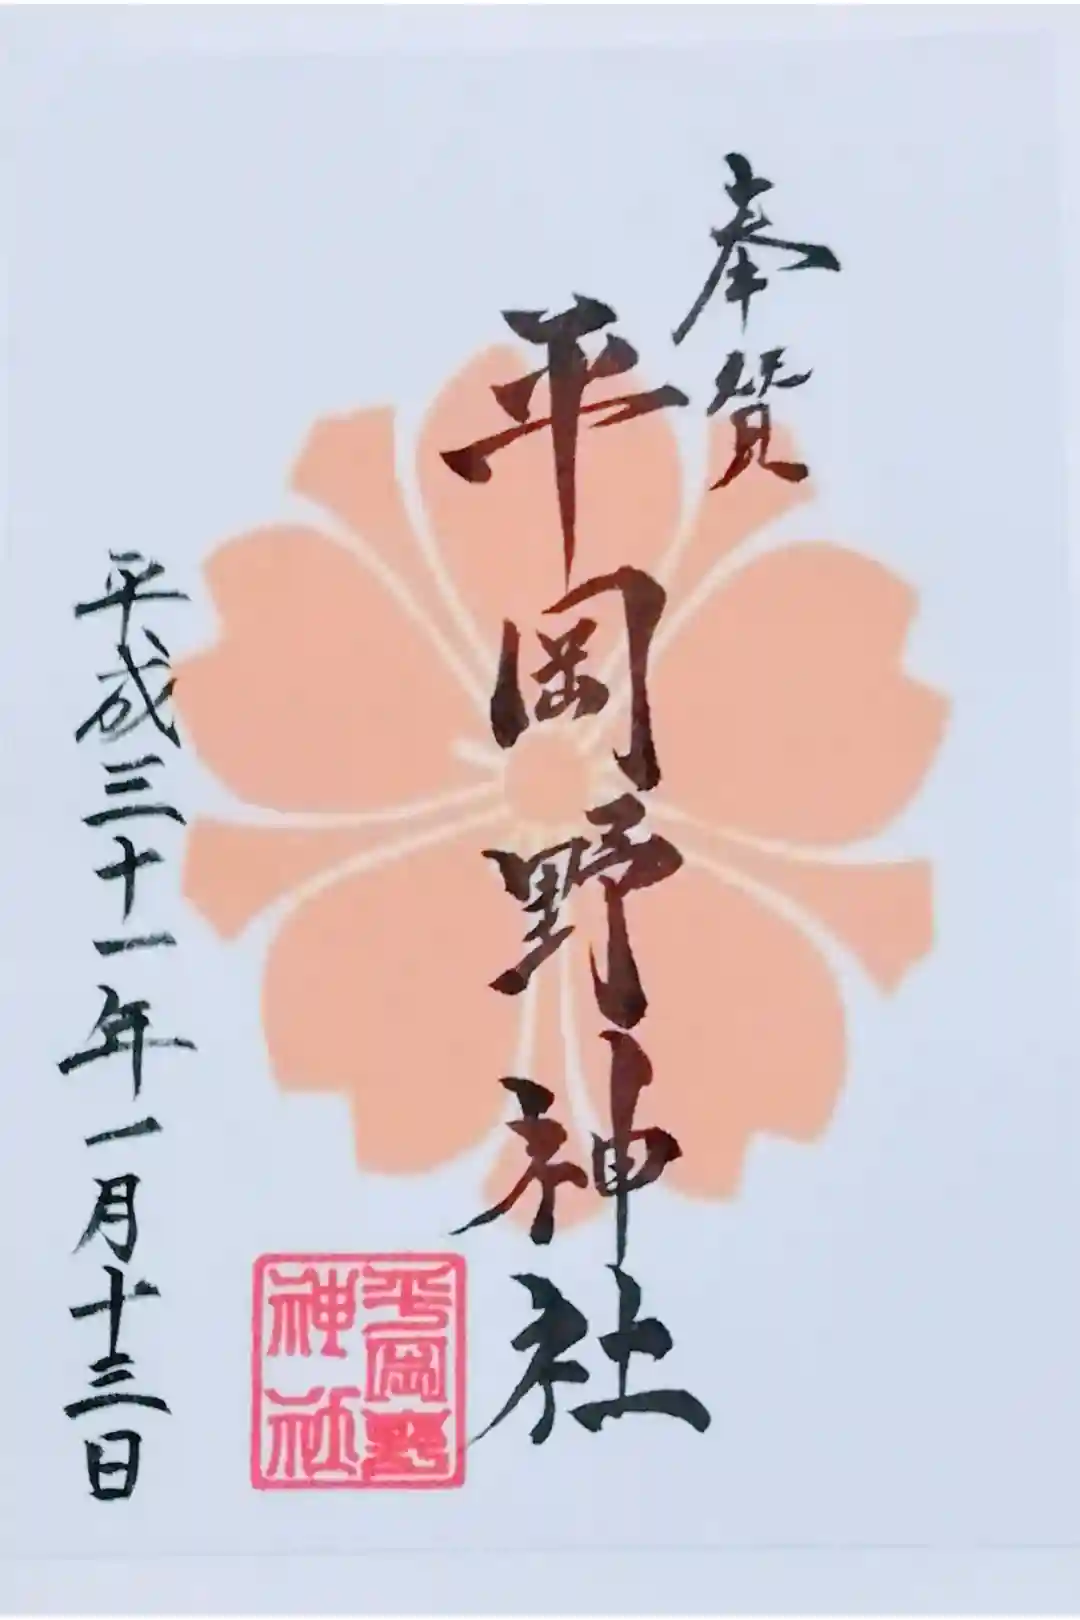 奉賛
平岡野神社
平成三十一年一月十三日
平岡野
神社